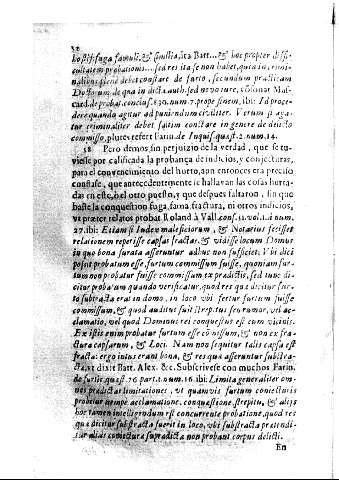 bo stis: fuga famuli, & similia, ita Batt... & hoc propter diffi-
cultatem probationis... sed res ita se non habet, quia in crimi-
nalibus bene debet constare de furto, secundum practicam
Doctorum de qua in dicta auth. sed novo iure, consonat Mas-
card. de probat. concius. 830. num. 7. prope finem, ibi: Id proce-
dere quando agitur ad puniendum civiliter. Verum si aga-
tur criminaliter debet saltim constare in genere de delicto
commisso, plures refert Farin. de Inquis. quæst. 2. num. 14.
58 Pero demos, sin perjuizio de la verdad, que se tu-
viesse por calificada la probança de indicios, y conjecturas,
para el convencimiento del hurto, aun entonces era preciso
constasse, que antecedentemente se hallavan las cosas hurta-
das en este, ò el otro puesto, y que despues faltaron, sin que
baste la conquestion fuga, fama, fractura, ni otros indicios,
ut præter relatos probat Roland à Vall. cons. 11. vol. 1. à num.
27. ibi: Etiam si Iudex maleficiorum, & Notarius fecisset
relationem reperisse capsas fractas, & vidisse locum Domus
in quo bona surata asseruntur adhuc non sufficiet: Vbi dici
possit probatum esse, furtum commissum fuisse, quoniam fur-
tum non probatur fuisse commissum ex prædictis, sed tunc di-
citur probatum quando verificatur, quod res quæ dicitur fur-
to subtracta erat in domo, in loco ubi fertur furtum fuisse
commissum, & quod auditus fuit strepitus, seu rumor, vel ac-
clamatio, vel quod Domenus rei conquestus est cum vicinis.
Ex istis enim probatur furtum esse comissum, & non ex fra-
ctura capsarum, & Loci. Nam non sequitur talis capsa est
fracta: ergo intus erant bona, & res quæ asseruntur substra-
cta, ut dixit Batt. Alex. &c. Subscrivese con muchos Farin.
de furtis, quæst. 76. part. 1. num. 16. ibi: Limita generaliter om-
nes prædictas limitationes, ut quamvis furtum coniecturis
probetur nempe acclamatione, conquestione, strepitu, & alijs
hoc tamen intelligendum est concurrente probatione, quod res
quæ dicitur subtracta fuerit in loco, ubi subtracta prætendi-
tur alias coniectura supradicta non probant corpus delicti.
En